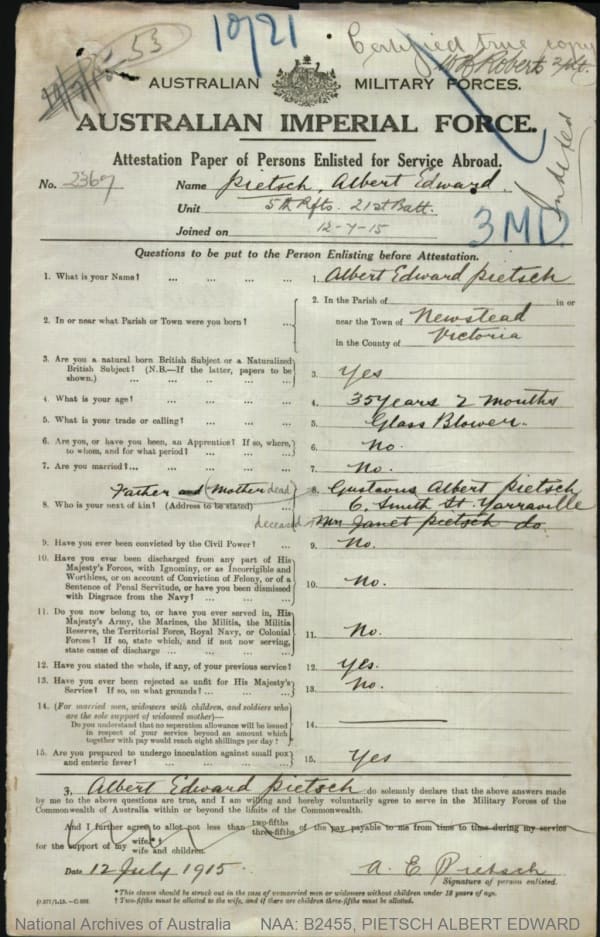 10/21
53
Certified true copy
W R Roberts 2/Lt.
AUSTRALIAN MILITARY FORCES.
AUSTRALIAN IMPERIAL FORCE.
Indexed
Attestation Paper of Persons Enlisted for Service Abroad.
No. 2367 Name Pietsch, Albert Edward
Unit 5th Rfts. 21st Batt.
Joined on 12-7-15
3MD
Questions to be put to the Person Enlisting before Attestation.
1. What is your Name? ... ... ... ... 1. Albert Edward Pietsch
2. In or near what Parish or Town were you born? ... 2. In the Parish of in or
near the Town of Newstead
in the County of Victoria
3. Are you a natural born British Subject or a Naturalized
British Subject? (N.B.—If the latter, papers to be
shown.) ... ... ... ... ... 3. Yes
4. What is your age? ... ... ... ... 4. 35 years 2 months
5. What is your trade or calling? ... ... ... 5. Glass Blower.
6. Are you, or have you been, an Apprentice? If so, where,
to whom, and for what period? ... ... ... 6. No.
7. Are you married?... ... ... ... ... 7. No.
Father and (Mother dead) 8. Gustavus Albert Pietsch
8. Who is your next of kin? (Address to be stated) ... 6. Smith St. Yarraville
deceased Mrs Janet Pietsch do
9. Have you ever been convicted by the Civil Power? ... 9. No.
10. Have you ever been discharged from any part of His
Majesty's Forces, with Ignominy, or as Incorrigible and
Worthless, or on account of Conviction of Felony, or of a
Sentence of Penal Servitude, or have you been dismissed
with Disgrace from the Navy? ... ... ... 10. No.
11. Do you now belong to, or have you ever served in, His
Majesty's Army, the Marines, the Militia, the Militia
Reserve, the Territorial Force, Royal Navy, or Colonial
Forces? If so, state which, and if not now serving,
state cause of discharge ... ... ... ... 11. No.
12. Have you stated the whole, if any, of your previous service? 12. Yes.
13. Have you ever been rejected as unfit for His Majesty's
Service? If so, on what grounds? ... ... ... 13. No.
14. (For married men, widowers with children, and soldiers who
are the sole support of widowed mother)—
Do you understand that no separation allowance will be issued
in respect of your service beyond an amount which
together with pay would reach eight shillings per day? 14.
15. Are you prepared to undergo inoculation against small pox
and enteric fever? ... ... ... ... 15. Yes
I, Albert Edward Pietsch do solemnly declare that the above answers made
by me to the above questions are true, and I am willing and hereby voluntarily agree to serve in the Military Forces of the
Commonwealth of Australia within or beyond the limits of the Commonwealth.
And I further agree to allot not less than two-fifths three-fifths of the pay payable to me from time to time during my service
for the support of my wife.* wife and children.
Date 12 July 1915. A. E. Pietsch
Signature of person enlisted.
* This clause should be struck out in the case of unmarried men or widowers without children under 18 years of age.
† Two-fifths must be allotted to the wife, and if there are children three-fifths must be allotted.
National Archives of Australia NAA: B2455, PIETSCH ALBERT EDWARD